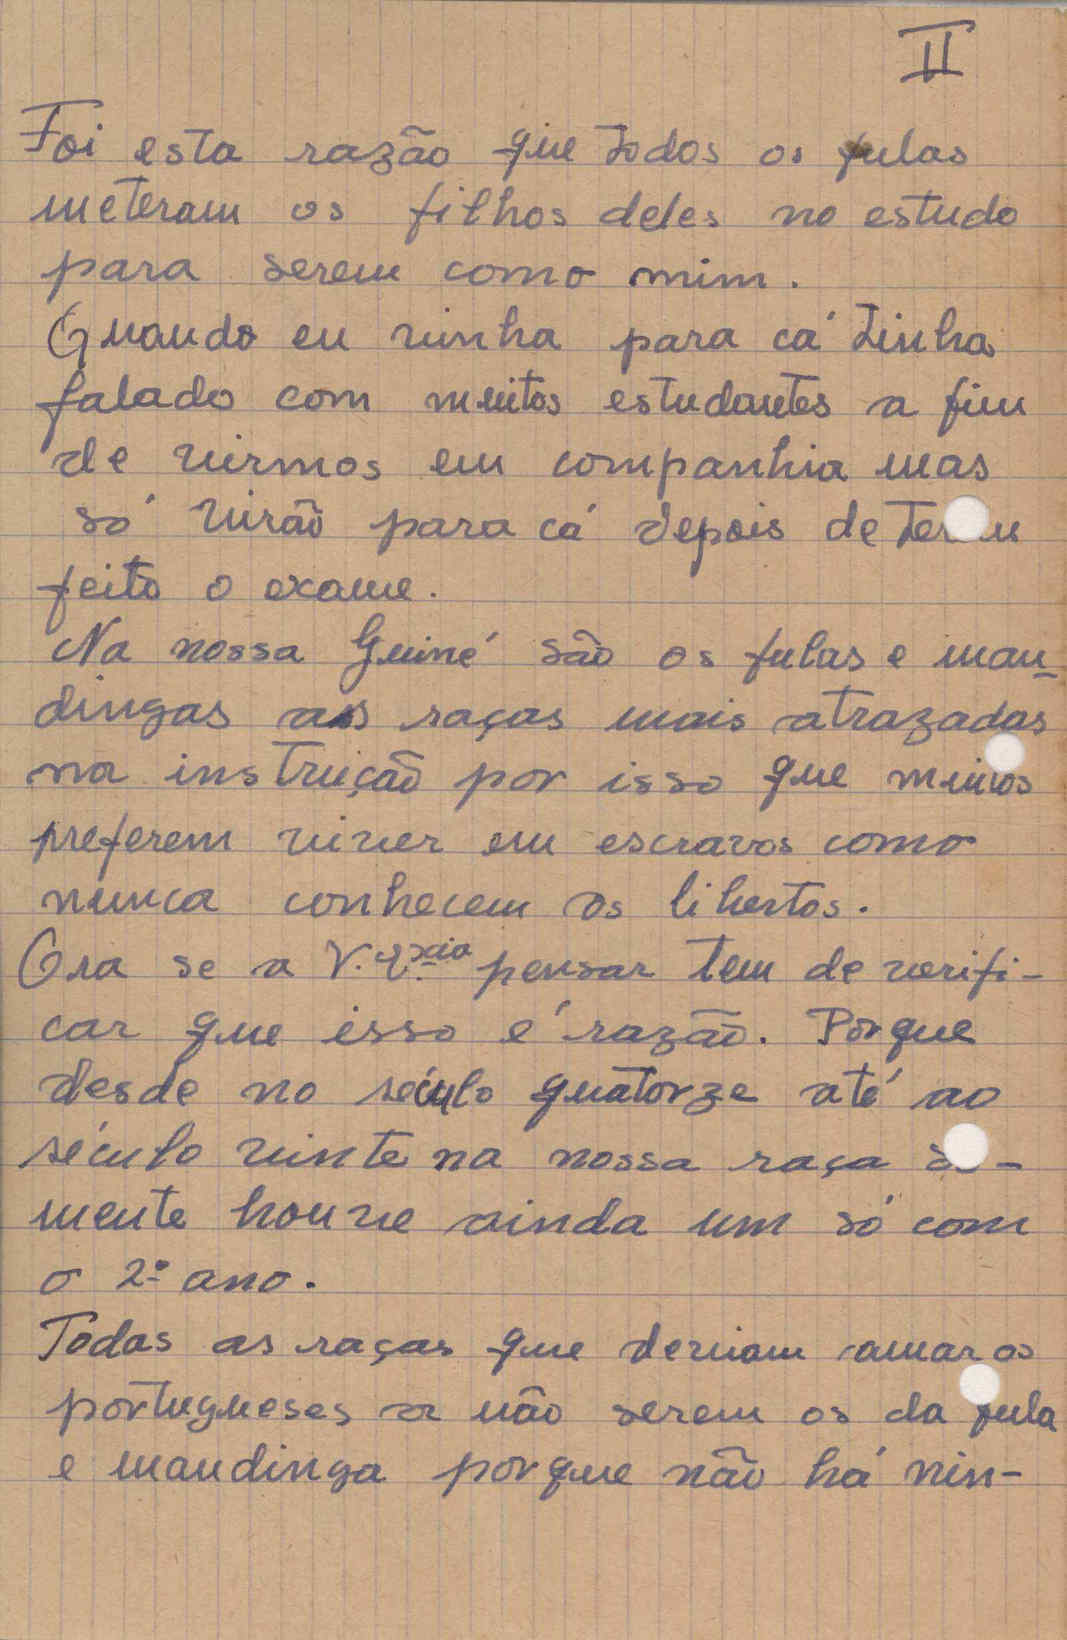 II
Foi esta razão que todos os fulas
meteram os filhos deles no estudo
para serem como mim.
Quando eu vinha para cá tinha
falado com muitos estudantes a fim
de virmos em companhia mas
só virão para cá depois de terem
feito o exame.
Na nossa Guiné são os fulas e man-
dingas as raças mais atrazadas
na instruição por isso que muitos
preferem viver em escravos como
nunca conhecem os libertos.
Ora se a V. Excia pensar tem de verifi-
car que isso é razão. Porque
desde no século quatorze até ao
século vinte na nossa raça sò-
mente houve ainda um só com
o 2º ano.
Todas as raças que deviam amar os
portugueses a não serem os da fula
e mandinga porque não há nin-